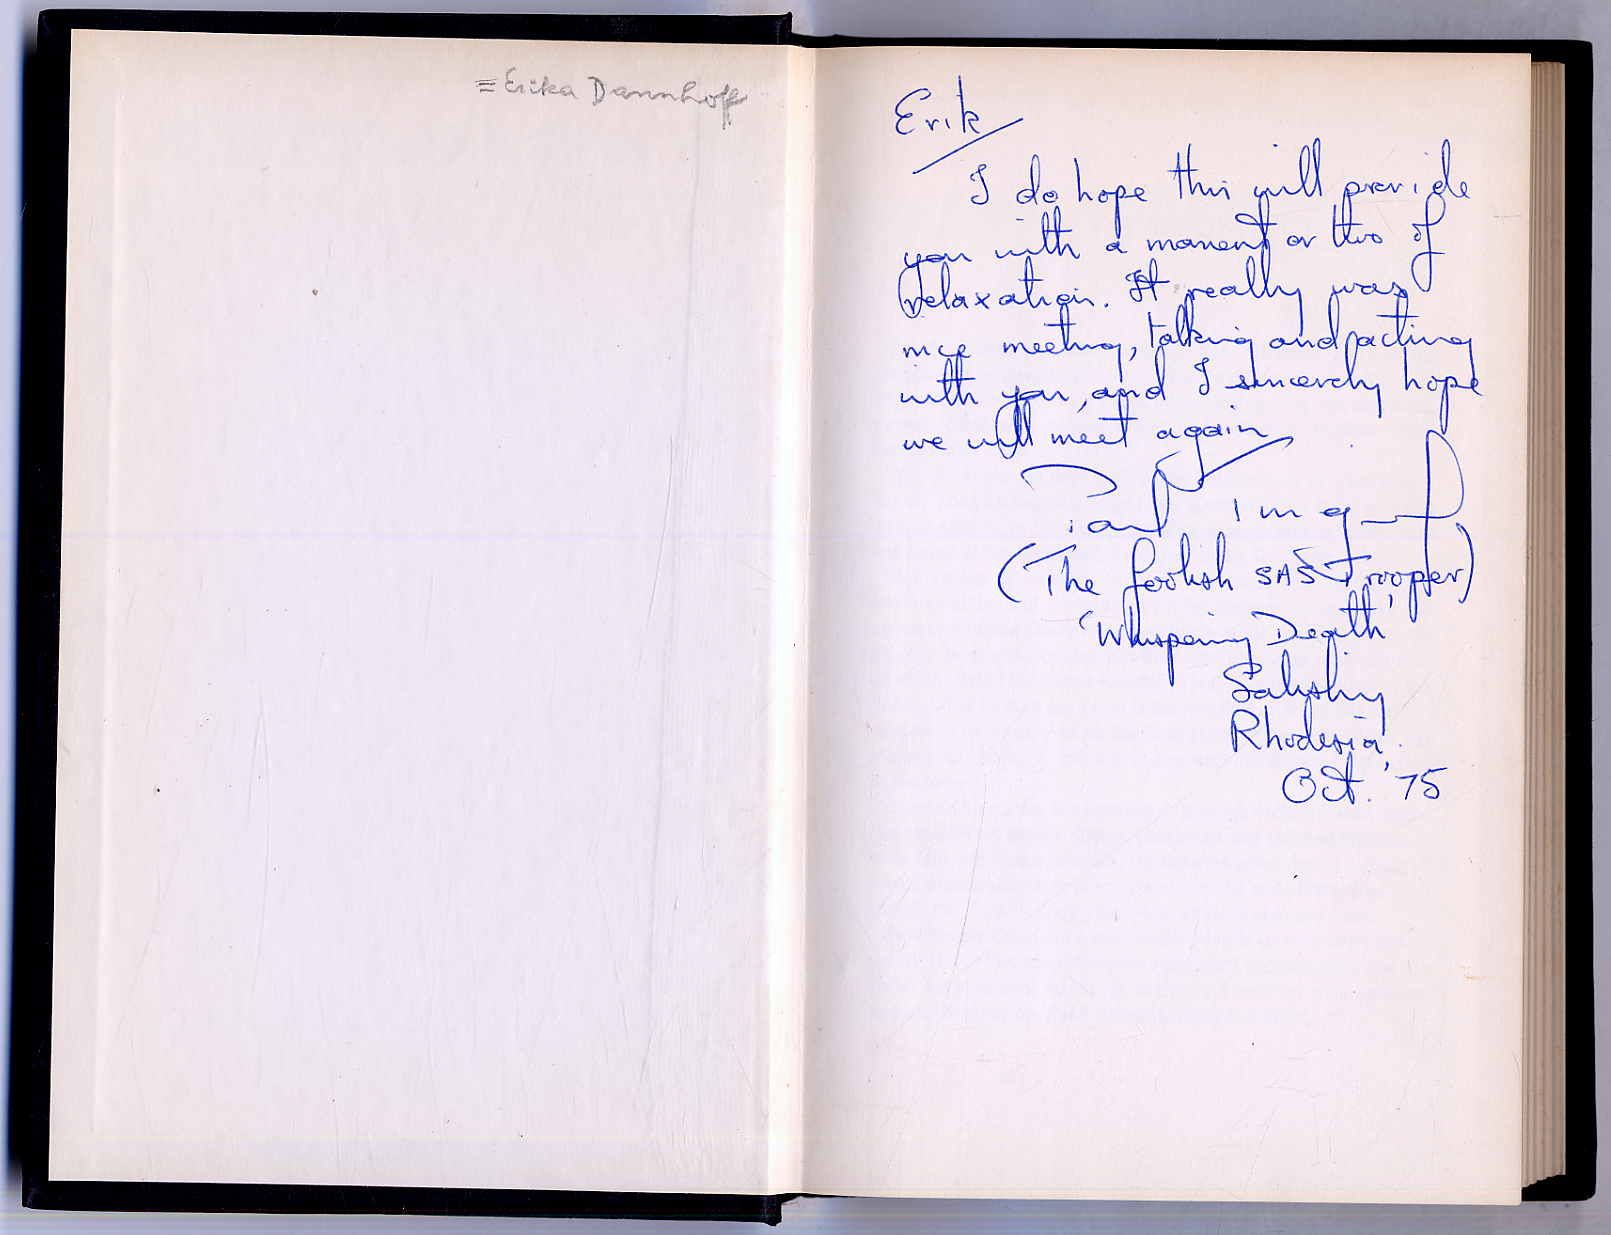 = Erika Dannhoff
Erik
I do hope this will provide
you with a moment or two of
relaxation. It really was
nice meeting, talking and acting
with you, and I sincerely hope
we will meet again
(The foolish SAS Trooper)
'Whispering Death'
Rhodesia.
Oct. '75